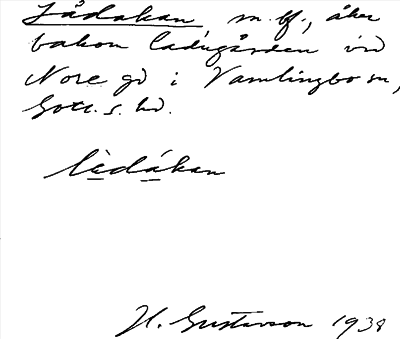 Lådakan m. bf., åker
bakom ladugården vid
Nore gd i Vamlingbo sn,
Gotl. s. hd.
làdákan
H. Gustavson 1938